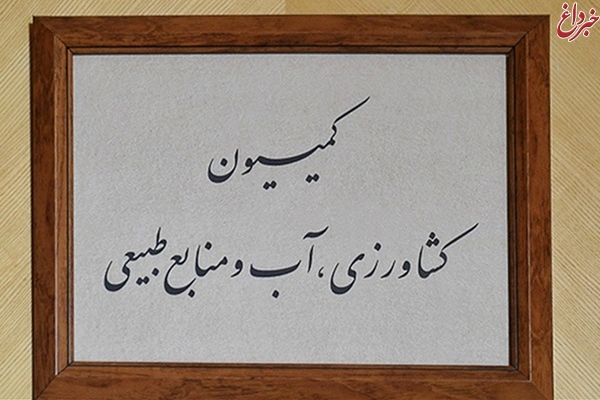 خبرداغ
کمیسیون
کشاورزی، آب و منابع طبیعی